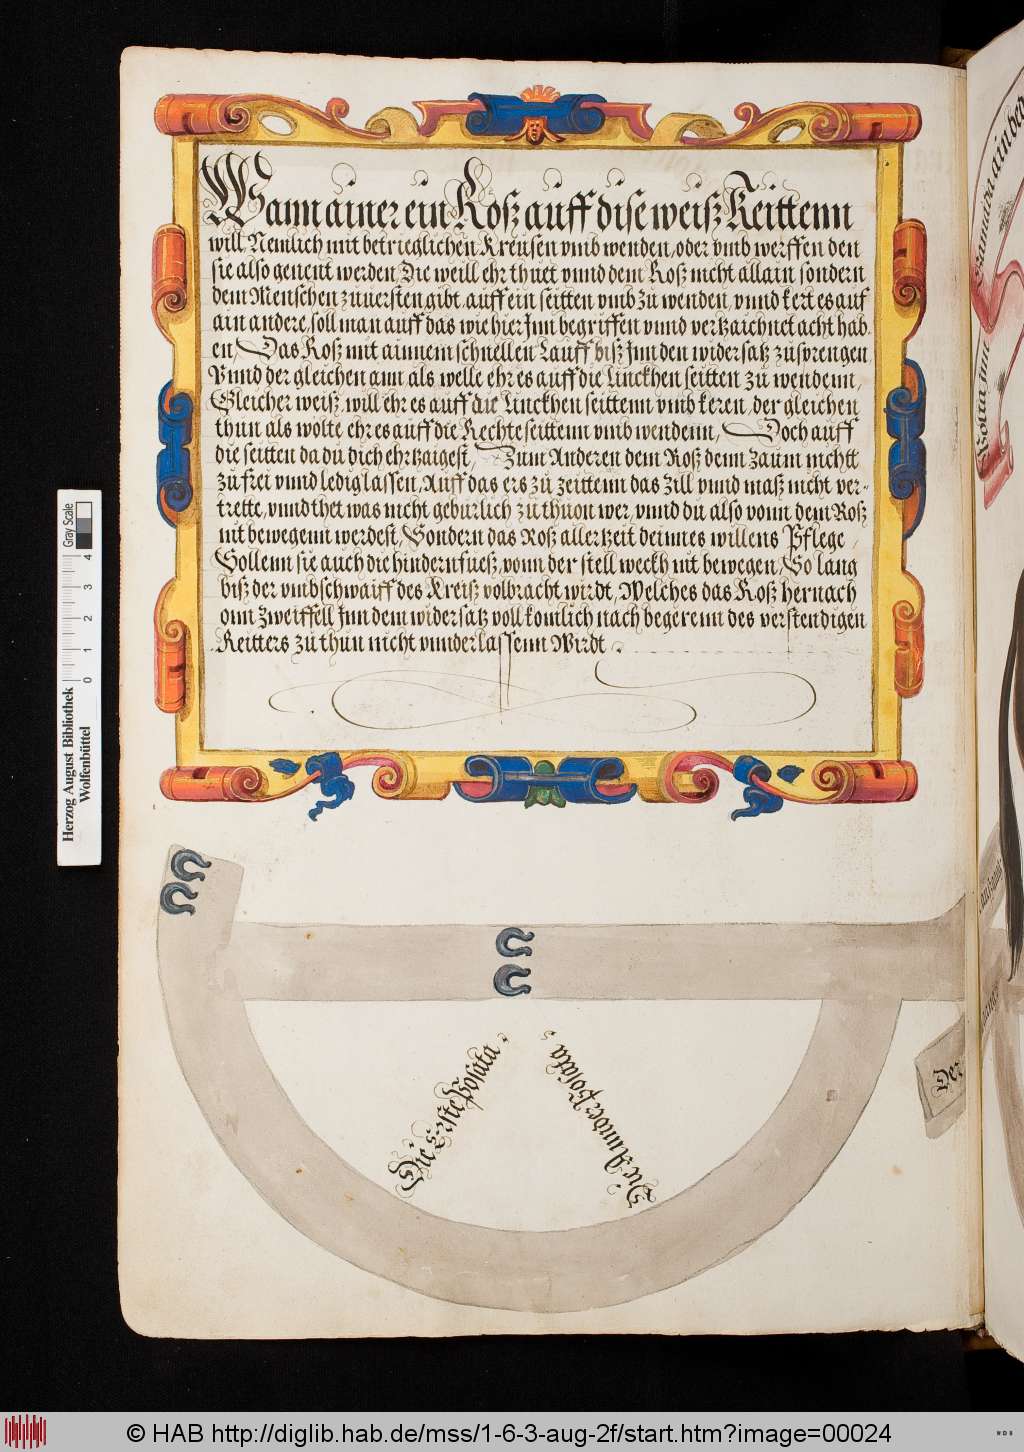 Wann ainer ein Roß auff dise weiß Reittenn
will, Nemlich mit betrieglichen Kreusen vmb wenden, oder vmb werffen den
sie also genent werden, Die weill ehr thuet vnnd dem Roß nicht allain sondern
dem Menschen zuuersten gibt, auff ein seitten vmb zu wenden, vnnd kert es auf
ain andere, soll man auff das wie hier Inn begriffen vnnd vertzaichnet acht hab
en, Das Roß mit ainnem schnellen Lauff biß Inn den widersatz zusprengen
Vnnd der gleichen ann als welle ehr es auff die Linckhen seitten zu wendenn,
Gleicher weiß, will ehr es auff die Linckhen seittenn vmb keren, der gleichen
thun als wolte ehr es auff die Rechte seittenn vmb wendenn, Doch auff
die seitten da du dich ehrtzaigest, Zum Anderen dem Roß denn Zaum nichtt
zu frei vnnd ledig lassen, Auff das ers zu zeittenn das Zill vnnd maß nicht ver-
trette, vnnd thet was nicht geburlich zu thuon wer, vnnd du also vonn dem Roß
nit bewegenn werdest, Sondern das Roß allertzeit deinnes willens Pflege
Sollenn sie auch die hindern fuesß, vonn der stell weckh nit bewegen, So lang
biß der vmbschwaiff des Kreiß volbracht wirdt, Welches das Roß hernach
onn zweiffell Inn dem widersatz vollkomlich nach begerenn des verstendigen
Reitters zu thun nicht vnnderlassenn Wirdt.
Die Erste Posata.
Die Annder Posata.
Der
Posta
Herzog August Bibliothek
Wolfenbüttel
0 1 2 3 4
Gray Scale
© HAB http://diglib.hab.de/mss/1-6-3-aug-2f/start.htm?image=00024
WDB